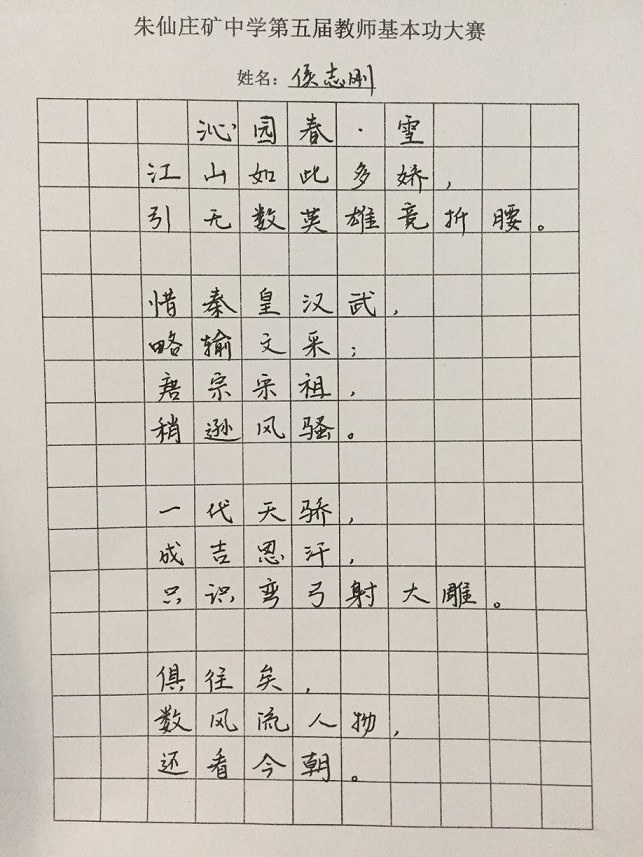 朱仙庄矿中学第五届教师基本功大赛
姓名：侯志刚
沁园春·雪
江山如此多娇，
引无数英雄竞折腰。
惜秦皇汉武，
略输文采；
唐宗宋祖，
稍逊风骚。
一代天骄，
成吉思汗，
只识弯弓射大雕。
俱往矣，
数风流人物，
还看今朝。